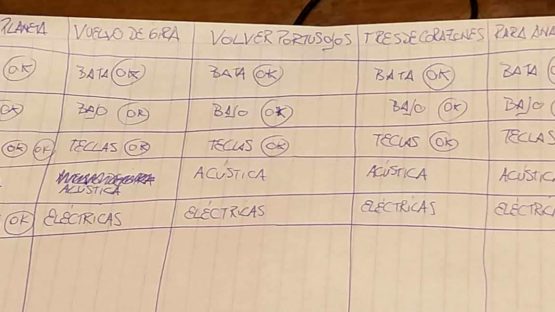 PLANETA VUELVO DE GIRA VOLVER POR TUS OJOS TRES DE CORAZONES PARA ANA
OK BATA OK BATA OK BATA OK BATA
OK BAJO OK BAJO OK BAJO OK BAJO
OK OK TECLAS OK TECLAS OK TECLAS OK TECLAS
ACÚSTICA ACÚSTICA ACÚSTICA ACÚSTICA
OK ELÉCTRICAS ELÉCTRICAS ELÉCTRICAS ELÉCTRICAS